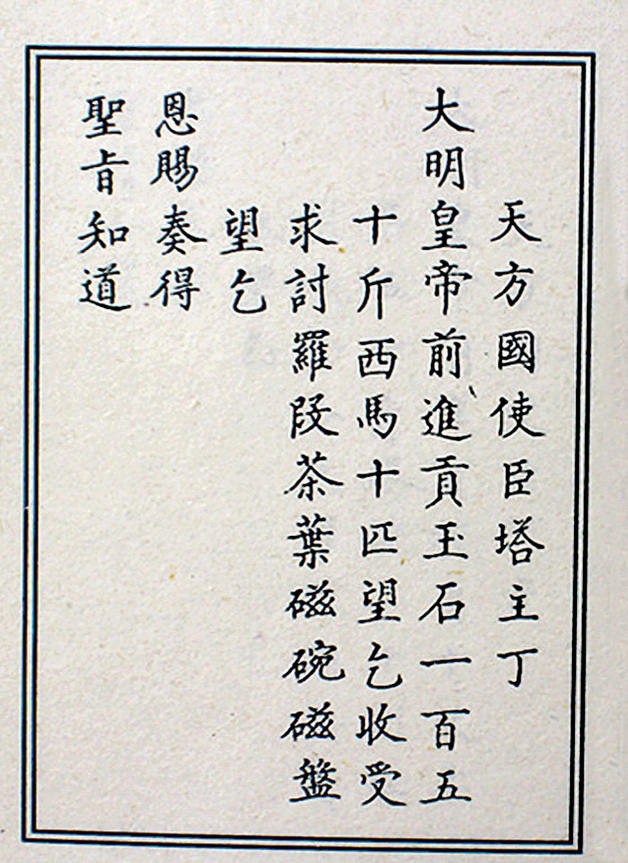 天方國使臣塔主丁
大明皇帝前進貢玉石一百五
十斤西馬十匹望乞收受
求討羅段茶葉磁碗磁盤
望乞
恩賜奏得
聖旨知道